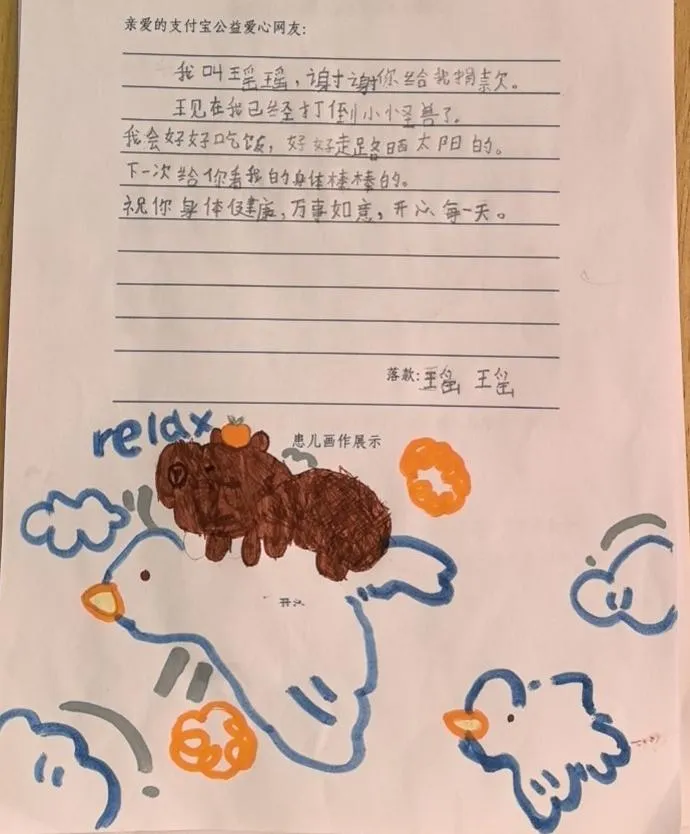 亲爱的支付宝公益爱心网友：
我叫瑶瑶，谢谢你给我捐款。
现在我已经打倒小怪兽了。
我会好好吃饭，好好走路晒太阳的。
下一次给你看我的身体棒棒的。
祝你身体健康，万事如意，开心每一天。
落款：瑶 瑶
relax
患儿画作展示
开心